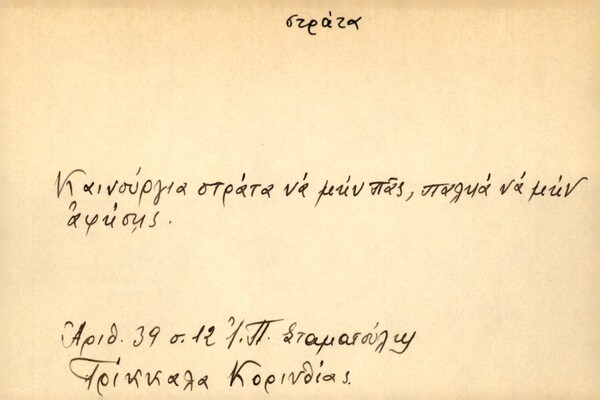 στράτα
Καινούργια στράτα νά μήν πᾶς, παληά νά μήν
ἀφήσῃς.
Ἀριθ. 39 σ. 12 Ἰ. Π. Σταματούλη
Τρίκκαλα Κορινθίας.